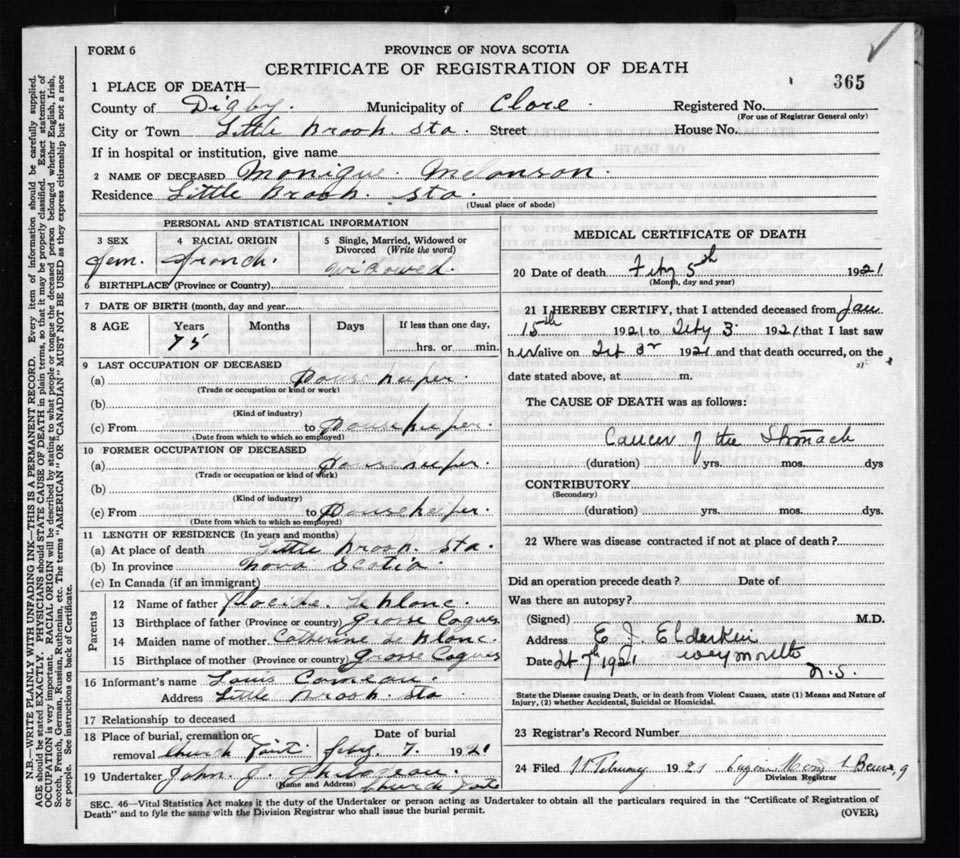 FORM 6
PROVINCE OF NOVA SCOTIA
CERTIFICATE OF REGISTRATION OF DEATH
365
1 PLACE OF DEATH—
County of Digby. Municipality of Clare. Registered No.
(For use of Registrar General only)
City or Town Little Brook Sta. Street House No.
If in hospital or institution, give name
2 NAME OF DECEASED Monique Melanson.
Residence Little Brook Sta.
(Usual place of abode)
PERSONAL AND STATISTICAL INFORMATION
3 SEX 4 RACIAL ORIGIN 5 Single, Married, Widowed or Divorced (Write the word)
Fem. French. Widowed.
6 BIRTHPLACE (Province or Country)
7 DATE OF BIRTH (month, day and year)
8 AGE Years Months Days If less than one day,
75 hrs. or min.
9 LAST OCCUPATION OF DECEASED
(a) House keeper.
(Trade or occupation or kind of work)
(b)
(Kind of industry)
(c) From to House keeper.
(Date from which to which so employed)
10 FORMER OCCUPATION OF DECEASED
(a) House keeper.
(Trade or occupation or kind of work)
(b)
(Kind of industry)
(c) From to House keeper.
(Date from which to which so employed)
11 LENGTH OF RESIDENCE (In years and months)
(a) At place of death Little Brook Sta.
(b) In province Nova Scotia.
(c) In Canada (if an immigrant)
Parents
12 Name of father Placide Le Blanc.
13 Birthplace of father (Province or country) Grosse Coques
14 Maiden name of mother Catherine Le Blanc.
15 Birthplace of mother (Province or country) Grosse Coques
16 Informant's name Louis Comeau.
Address Little Brook Sta
17 Relationship to deceased
18 Place of burial, cremation or removal Church Point Date of burial Feby. 7. 1921
19 Undertaker John. J.
(Name and Address) Church Point
MEDICAL CERTIFICATE OF DEATH
20 Date of death Feby 5th 1921
(Month, day and year)
21 I HEREBY CERTIFY, that I attended deceased from Jan.
15th 1921 to Feby 3. 1921 that I last saw
h alive on 3r 1921 and that death occurred, on the
date stated above, at m.
The CAUSE OF DEATH was as follows:
Cancer of the Stomach
(duration) yrs. mos. dys
CONTRIBUTORY
(Secondary)
(duration) yrs. mos. dys.
22 Where was disease contracted if not at place of death?
Did an operation precede death? Date of
Was there an autopsy?
(Signed) M.D.
Address E J. Elderkin
Date 7th 1921 Weymouth
N.S.
State the Disease causing Death, or in death from Violent Causes, state (1) Means and Nature of
Injury, (2) whether Accidental, Suicidal or Homicidal.
23 Registrar's Record Number
24 Filed February 1921
Division Registrar
SEC. 46—Vital Statistics Act makes it the duty of the Undertaker or person acting as Undertaker to obtain all the particulars required in the "Certificate of Registration of
Death" and to fyle the same with the Division Registrar who shall issue the burial permit. (OVER)
N.B.—WRITE PLAINLY WITH UNFADING INK—THIS IS A PERMANENT RECORD. Every item of information should be carefully supplied.
AGE should be stated EXACTLY. PHYSICIANS should STATE CAUSE OF DEATH in plain terms, so that it may be properly classified. Exact statement of
OCCUPATION is very important. RACIAL ORIGIN will be described by stating to what people or tongue the deceased person belonged whether English, Irish,
Scotch, French, German, Russian, Ruthenian, etc. The terms "AMERICAN" OR "CANADIAN" MUST NOT BE USED as they express citizenship but not a race
or people. See instructions on back of Certificate.